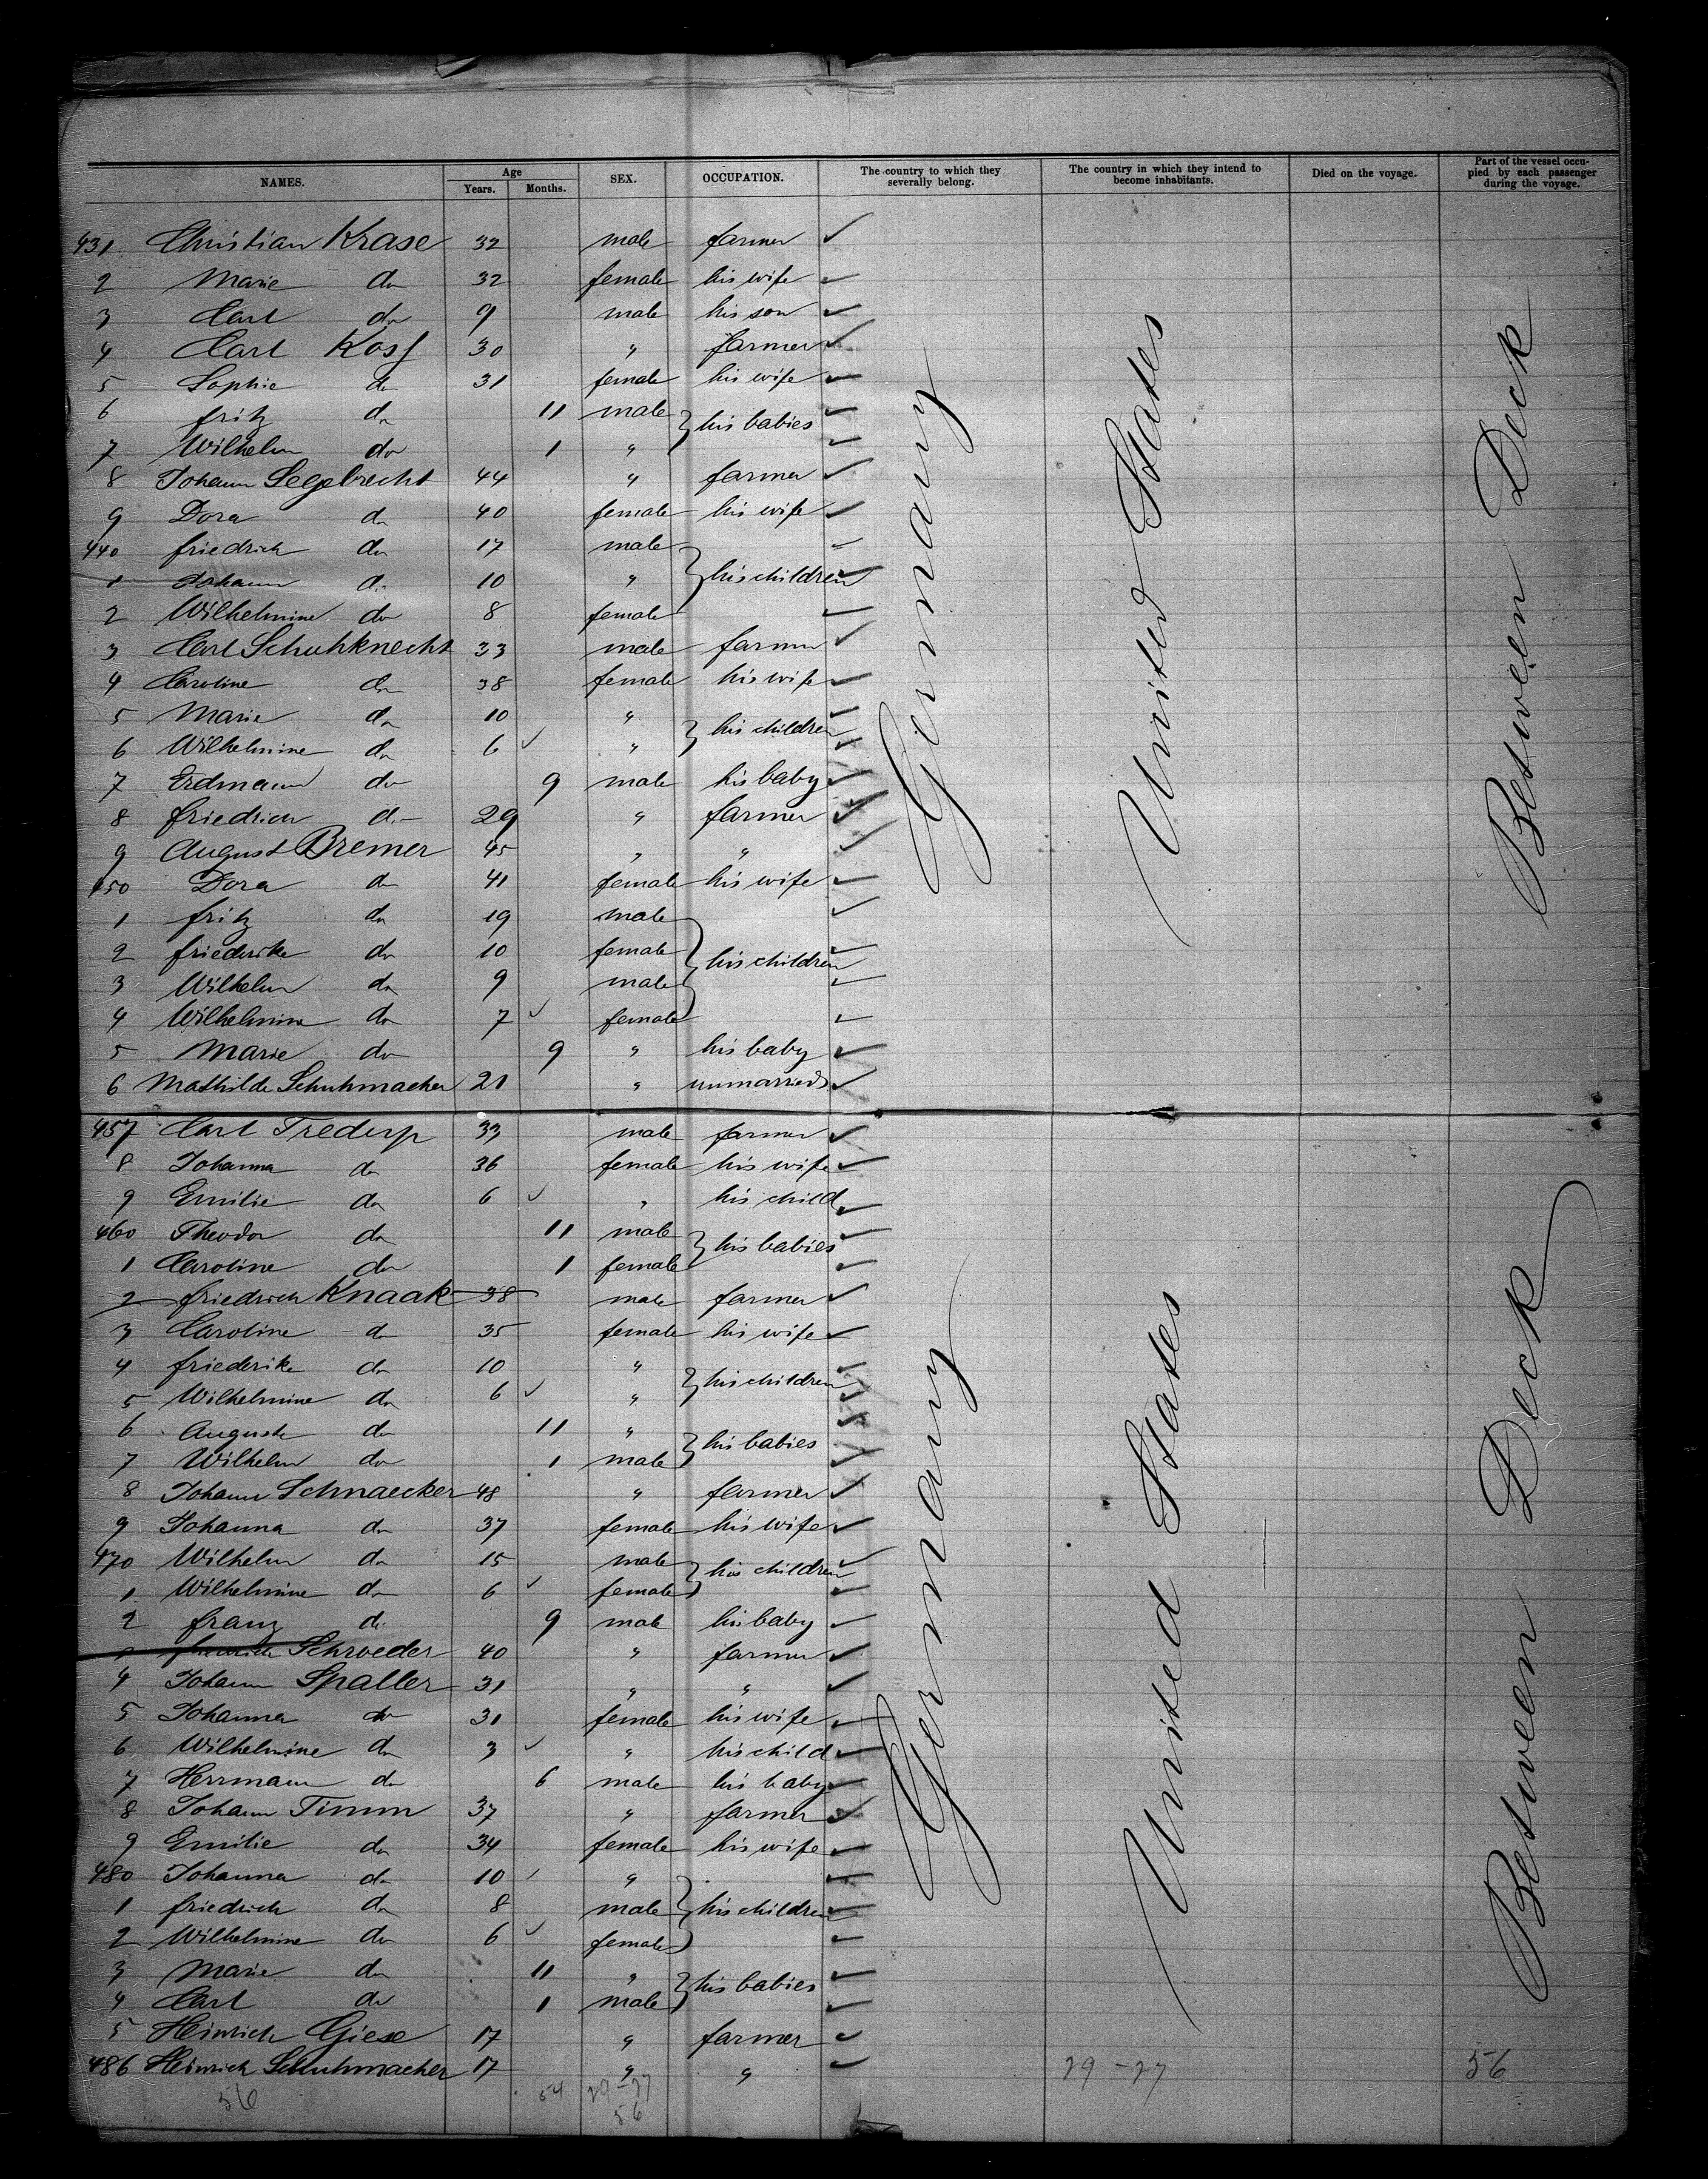 NAMES. Age Years. Months. SEX. OCCUPATION. The country to which they severally belong. The country in which they intend to become inhabitants. Died on the voyage. Part of the vessel occupied by each passenger during the voyage.
431 Christian Krase 32 male farmer ✓
2 Marie do 32 female his wife ✓
3 Carl do 9 male his son ✓
4 Carl Koss 30 " farmer ✓
5 Sophie do 31 female his wife ✓
6 fritz do 11 male } his babies ✓
7 Wilhelm do 1 " ✓
8 Johann Segebrecht 44 " farmer ✓
9 Dora do 40 female his wife ✓
440 friedrich do 17 male ✓
1 Johann do 10 " } his children ✓
2 Wilhelmine do 8 female ✓
3 Carl Schuhknecht 33 male farmer ✓
4 Caroline do 38 female his wife ✓
5 Marie do 10 " } his children ✓
6 Wilhelmine do 6 ✓ " ✓
7 Erdmann do 9 male his baby ✓
8 friedrich do 29 " farmer ✓
9 August Bremer 45 " " ✓
450 Dora do 41 female his wife ✓
1 fritz do 19 male ✓
2 friederike do 10 female } his children ✓
3 Wilhelm do 9 male ✓
4 Wilhelmine do 7 ✓ female ✓
5 Marie do 9 " his baby ✓
6 Mathilde Schuhmacher 21 " unmarried ✓
Germany United States Between Deck
457 Carl Trederp 33 male farmer ✓
8 Johanna do 36 female his wife ✓
9 Emilie do 6 ✓ " his child ✓
460 Theodor do 11 male } his babies ✓
1 Caroline do 1 female ✓
2 friedrich Knaak 38 male farmer ✓
3 Caroline do 35 female his wife ✓
4 friederike do 10 " } his children ✓
5 Wilhelmine do 6 ✓ " ✓
6 Auguste do 11 " } his babies ✓
7 Wilhelm do 1 male ✓
8 Johann Schnaecker 48 " farmer ✓
9 Johanna do 37 female his wife ✓
470 Wilhelm do 15 male } his children ✓
1 Wilhelmine do 6 ✓ female ✓
2 franz do 9 male his baby ✓
friedrich Schroeder 40 " farmer ✓
4 Johann Spaller 31 " " ✓
5 Johanna do 31 female his wife ✓
6 Wilhelmine do 3 ✓ " his child ✓
7 Herrmann do 6 male his baby ✓
8 Johann Timm 37 " farmer ✓
9 Emilie do 34 female his wife ✓
480 Johanna do 10 " ✓
1 friedrich do 8 male } his children ✓
2 Wilhelmine do 6 ✓ female ✓
3 Marie do 11 " } his babies ✓
4 Carl do 1 male ✓
5 Heinrich Giese 17 " farmer ✓
486 Heinrich Schuhmacher 17 " " ✓
Germany United States Between Deck
29-27 56
56 54 29-27
56